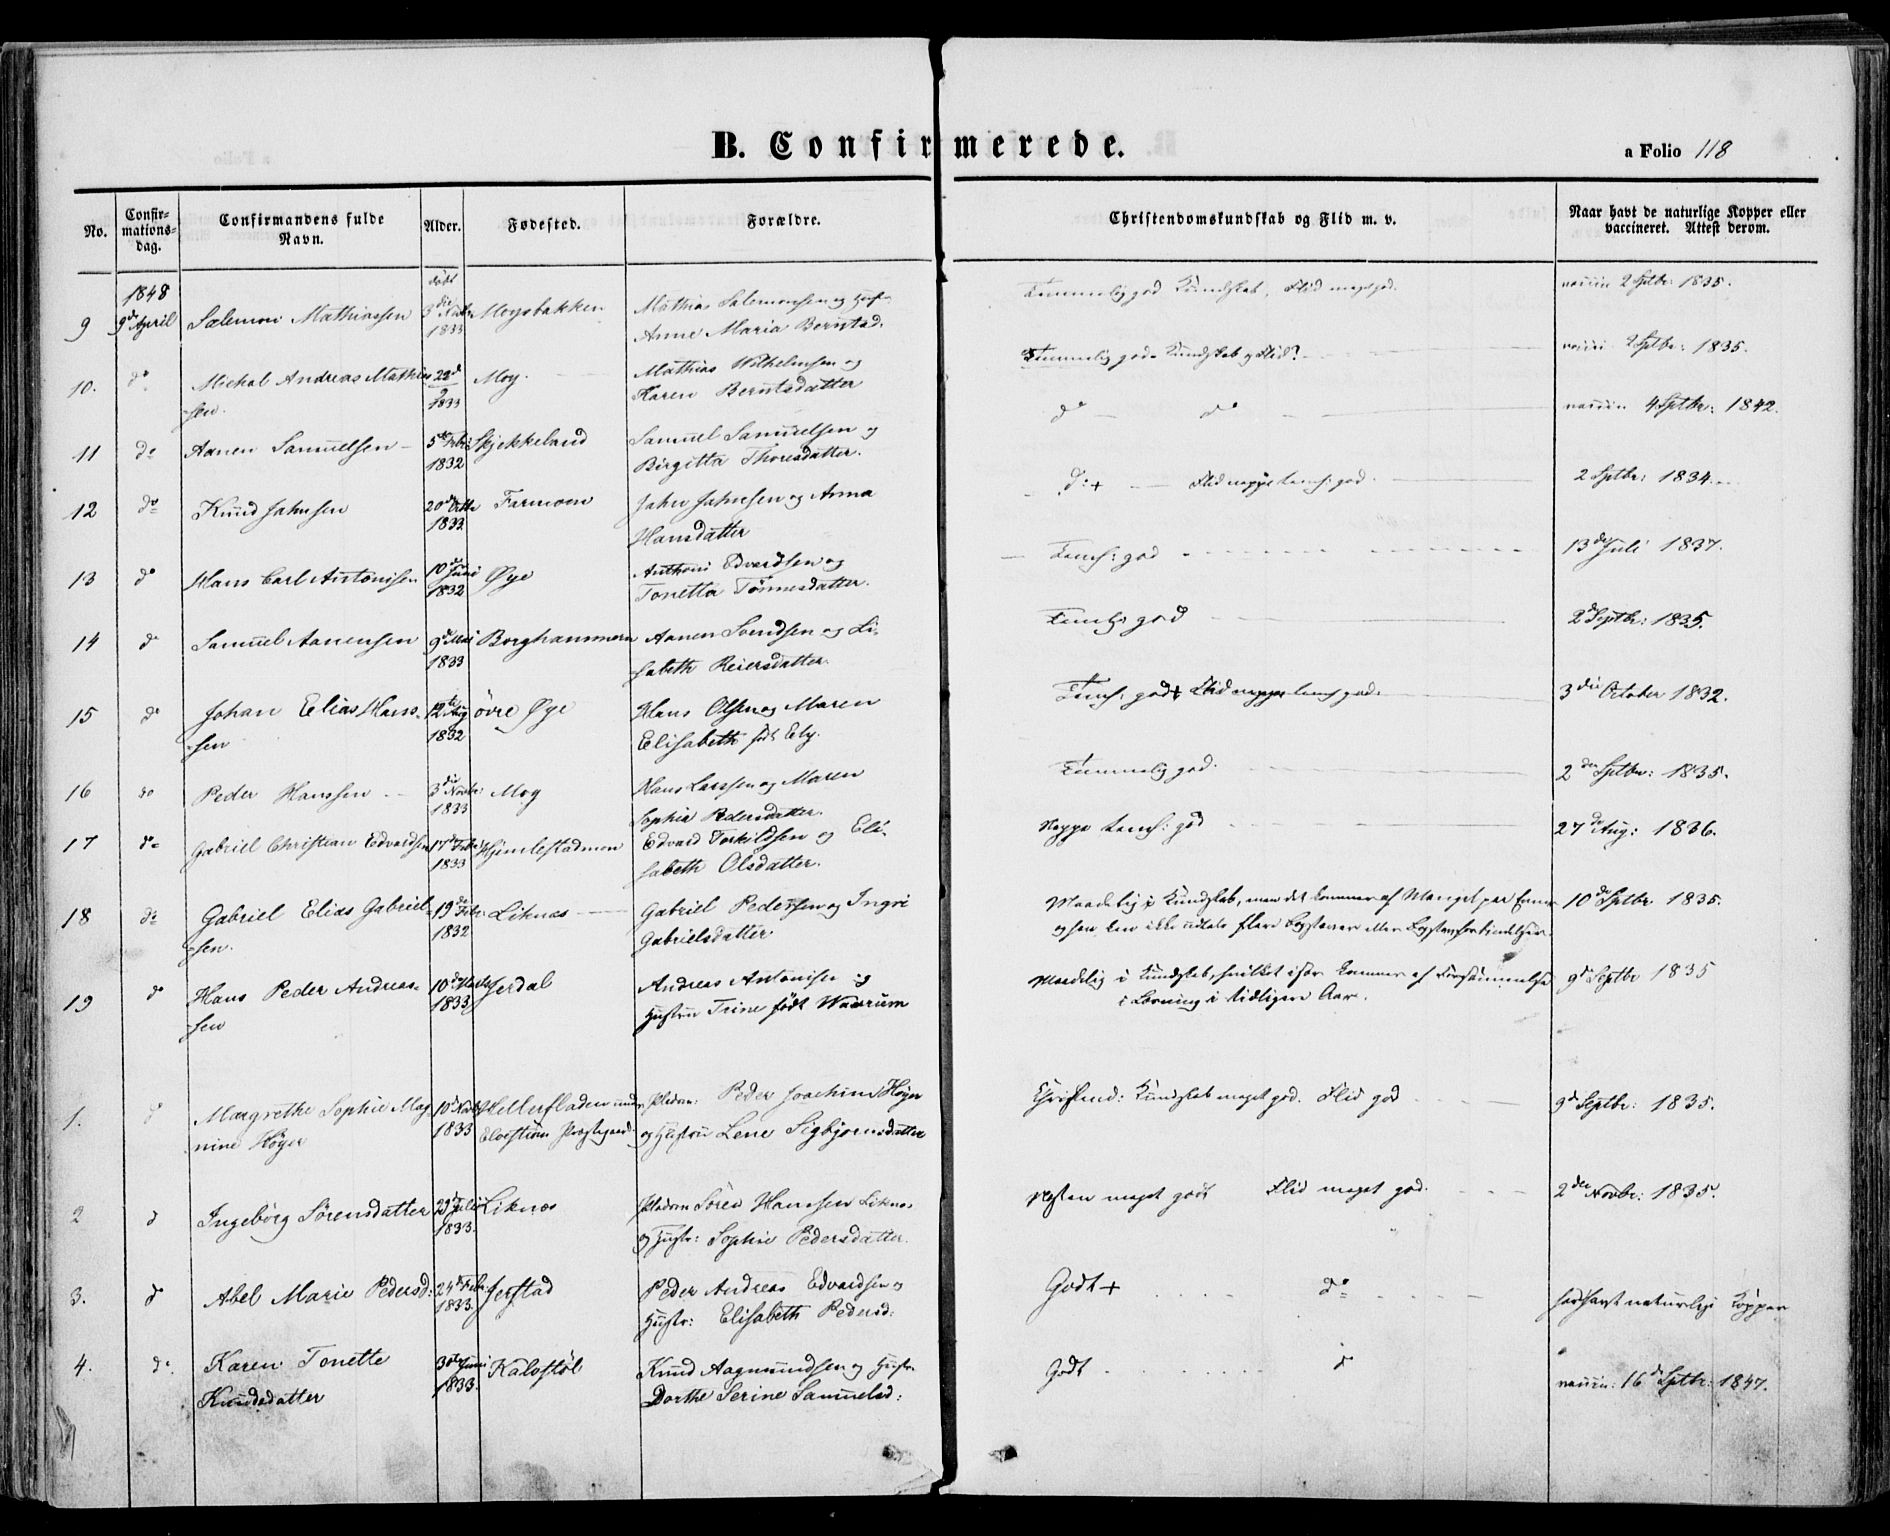 B. Confirmerede.
a Folio 118
No.
Confir-
mations-
dag.
Confirmandens fulde
Navn.
Alder.
Fødested.
Forældre.
Christendomskundskab og Flid m. v.
Naar havt de naturlige Kopper eller
vaccineret. Attest derom.
1848
født
9 9d April Salemon Mathiassen 3die 1833 Moysbakken Mathias Salemonsen og
Anne Maria Berntsd.
Temmelig god Kundskab, Flid meget god. 2 Septbr. 1835.
10. do Michal Andreas Mathias
sen. 1833 Moy Mathias Wilhelmsen og
Karen Berntsdatter
Temmelig god Kundskab og Flid? 2 Septbr: 1835.
11 do Aanen Samuelsen 5d Febr 1832 Skjekkeland Samuel Samuelsen og
Birgitta Thoresdatter.
do do 4 Septbr: 1842.
12 do Knud Jahnsen 20de Octbr Farmoen Jahn Jahnsen og Anna
Hansdatter
do + Flid neppe temh: god. 2 Septbr: 1834.
13 do Hans Carl Antonisen 10de Juni 1832 Øye Anthoni Edvardsen og
Tonetta Tönnesdatter.
Temh: god 13de Juli 1837.
14 do Samuel Aanensen 9d Mai 1833 Borghammeren Aanen Svendsen og Li-
sabeth Reiersdatter.
Temh: god 2d Septbr: 1835.
15 do Johan Elias Hans-
sen 12te Aug 1832 övre Øye Hans Olsen og Maren
Elisabeth født Ely.
Temh: god + Flid neppe temh god. 3die October 1832.
16 do Peder Hanssen 3die Novbr: 1833 Moy Hans Larssen og Maren
Sophia Pedersdatter.
Temmelig god. 2den Septbr: 1835.
17 do Gabriel Christian Edvardsen 17d Febr 1833 Hjimlestadmoen Edvard Torkildsen og Eli-
sabeth Olsdatter.
Neppe temh: god 27de Aug: 1836.
18 do Gabriel Elias Gabriel-
sen. 19de Febr: 1832 Liknes Gabriel Pedersen og Ingri
Gabrielsdatter
Maadelig i Kundskab, men det kommer af Mangel paa Evner 10de Septbr 1835.
og han kan ikke udtale flere Bogstaver eller Bogstavforbindelser.
19 do Hans Peder Andreas-
sen 10d 1833 Jerdal Andreas Antonisen og
Hustru Trine født Waarum
Maadelig i Kundskab, hvilket især kommer af Forsømmelse 9d Septbr 1835
i Læsning i tidligere Aar.
1. Margrethe Sophie Mag-
nine Höyer 10d 1833 Hellerfladen under
Elvestrøm Præstegaard Peder Joachim Höyer
og Hustru Lene Sigbjørnsdatter
Christend: Kundskab meget god. Flid god 9d Septbr: 1835.
2 d Ingebörg Sörensdatter 29d Juli 1833. Liknes Sören Hanssen Liknes
og Hustr: Sophie Pedersdatter.
Næsten meget godt Flid meget god. 2den Novbr: 1835.
3. do Abel Marie Pedersd: 24d Febr: 1833. Jerstad Peder Andreas Edvardsen og
Hustr: Elisabeth Pedersd:
Godt + do har havt naturlige Kopper
4. do Karen Tonette
Knudsdatter 30te Juni 1833. Kalostøl Knud Aagmundsen og Hustr
Dorthe Serine Samuelsd:
Godt do vaccin: 16d Septbr: 1847.